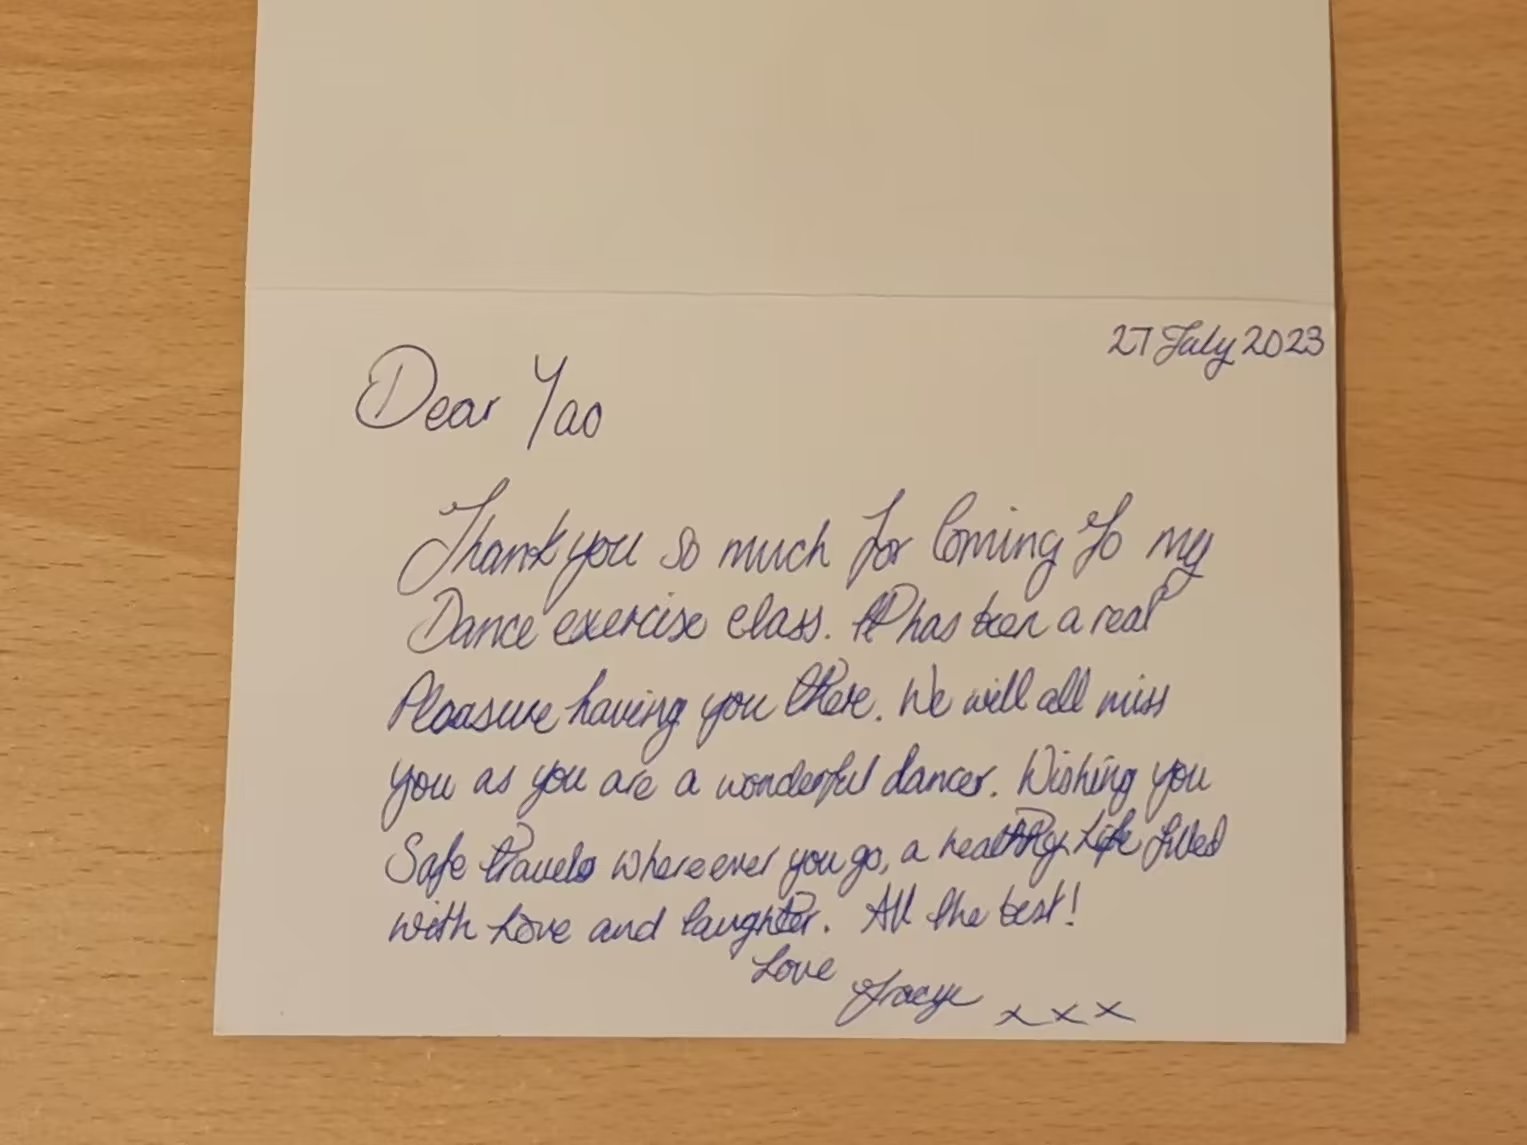 27 July 2023
Dear Yao
Thank you so much for Coming to my
Dance exercise class. It has been a real
Pleasure having you there. We will all miss
you as you are a wonderful dancer. Wishing you
Safe travels whereever you go, a healthy life filled
with Love and laughter. All the best!
Love
Tracye xxx